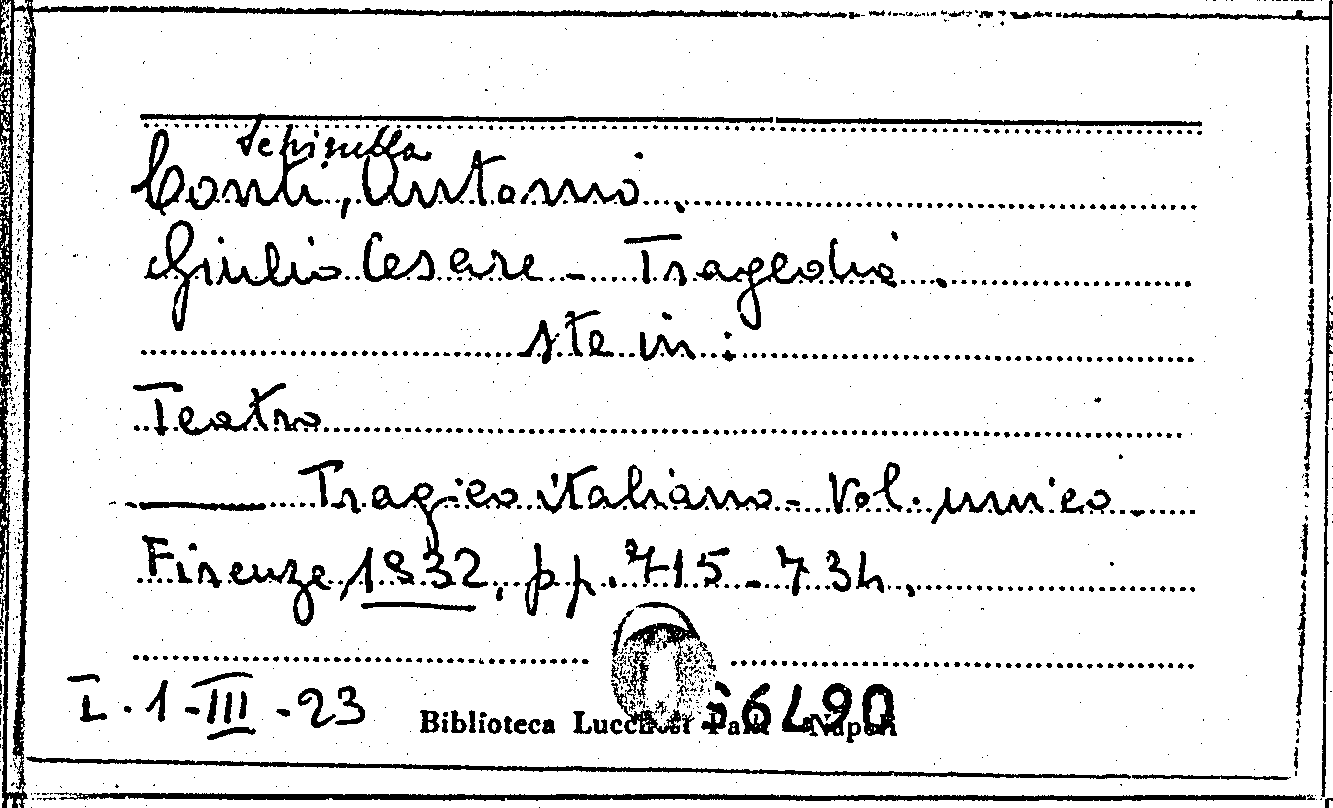 Schinella
Conti, Antonio.
Giulio Cesare - Tragedia.
ste in:
Teatro
Tragico italiano - Vol. unico.
Firenze, 1832, pp. 715 - 734.
I. 1 - III - 23
Biblioteca Lucchesi Palli Napoli